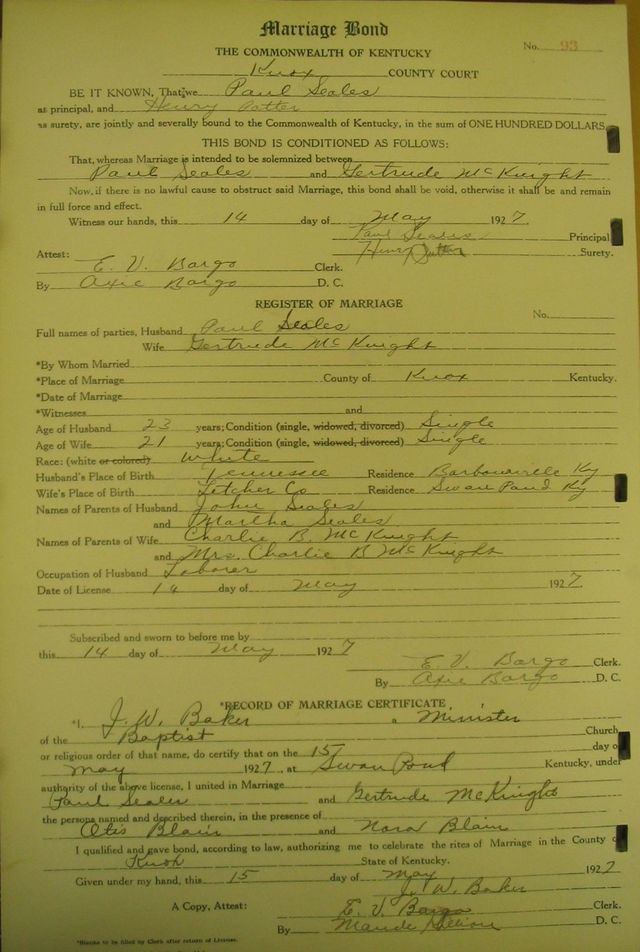 Marriage Bond
No. 93
THE COMMONWEALTH OF KENTUCKY
Knox COUNTY COURT
BE IT KNOWN, That we Paul Seales
as principal, and Henry Potter
as surety, are jointly and severally bound to the Commonwealth of Kentucky, in the sum of ONE HUNDRED DOLLARS
THIS BOND IS CONDITIONED AS FOLLOWS:
That, whereas Marriage is intended to be solemnized between
Paul Seales and Gertrude McKnight
Now, if there is no lawful cause to obstruct said Marriage, this bond shall be void, otherwise it shall be and remain
in full force and effect.
Witness our hands, this 14 day of May 1927
Paul Seales Principal
Henry Surety.
Attest:
E. V. Bargo Clerk.
By Axie Bargo D. C.
REGISTER OF MARRIAGE
No.
Full names of parties, Husband Paul Seales
Wife Gertrude McKnight
*By Whom Married
*Place of Marriage County of Knox Kentucky.
*Date of Marriage
*Witnesses and
Age of Husband 23 years; Condition (single, widowed, divorced) Single
Age of Wife 21 years; Condition (single, widowed, divorced) Single
Race: (white or colored) White
Husband's Place of Birth Tennessee Residence Barbourville Ky
Wife's Place of Birth Letcher Co Residence Swan Pond Ky
Names of Parents of Husband John Seales
and Martha Seales
Names of Parents of Wife Charlie B. McKnight
and Mrs. Charlie B McKnight
Occupation of Husband Laborer
Date of License 14 day of May 1927
Subscribed and sworn to before me by
this 14 day of May 1927
E. V. Bargo Clerk.
By Axie Bargo D. C.
*RECORD OF MARRIAGE CERTIFICATE
*I, J. W. Baker a Minister
of the Baptist Church
or religious order of that name, do certify that on the 15 day o
May 1927, at Swan Pond Kentucky, under
authority of the above license, I united in Marriage
Paul Seales and Gertrude McKnight
the persons named and described therein, in the presence of
Otis Blair and Nora Blair
I qualified and gave bond, according to law, authorizing me to celebrate the rites of Marriage in the County o
Knox State of Kentucky.
Given under my hand, this 15 day of May 1927
J. W. Baker
A Copy, Attest: E. V. Bargo Clerk.
By Maude D. C.
*Blanks to be filled by Clerk after return of License.